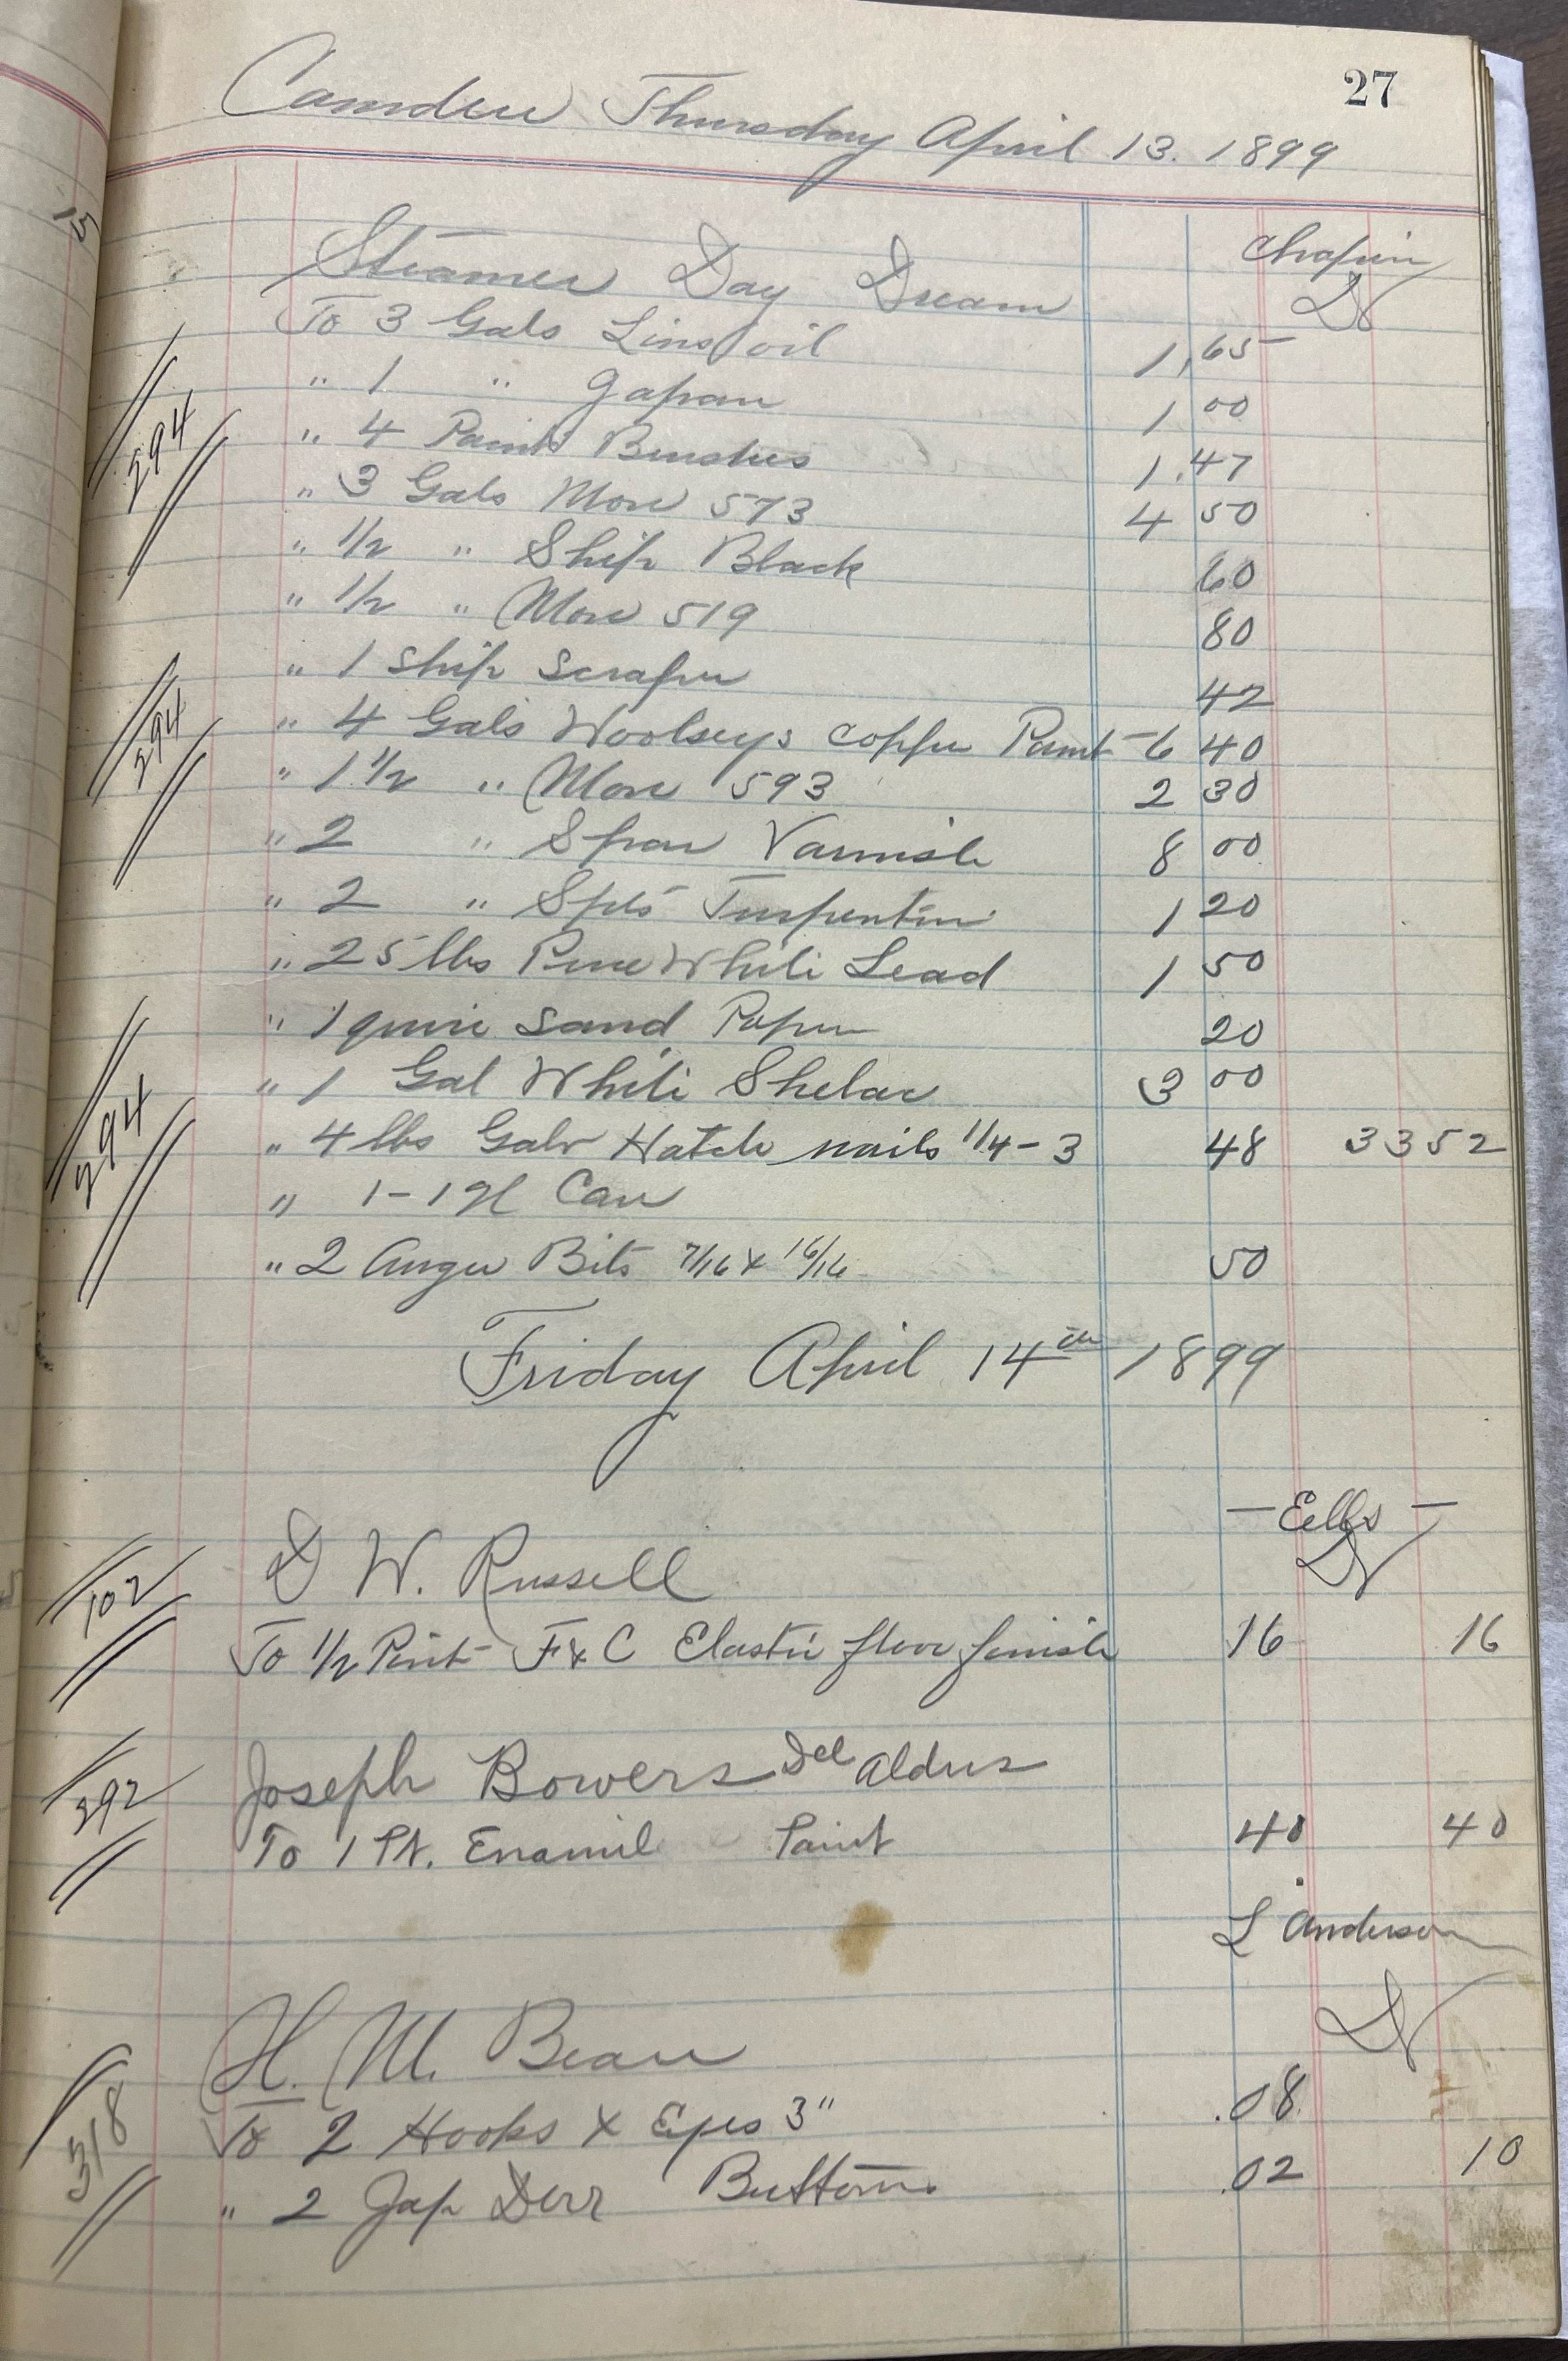 27
Camden Thursday April 13. 1899
15
Chapin
Steamer Day Dream Dr
To 3 Gals Lins oil 1,65
" 1 " Japan 1 00
294
" 4 Paint Brushes 1.47
" 3 Gals More 573 4 50
" 1/2 " Ship Black 60
" 1/2 " More 519 80
" 1 Ship Scraper 42
294
" 4 Gals Woolseys Copper Paint 6 40
" 1 1/2 " More 593 2 30
" 2 " Spar Varnish 8 00
" 2 " Spts Turpentine 1 20
" 25 lbs Pure White Lead 1 50
" 1 quire Sand Paper 20
" 1 Gal White Shelac 3 00
294
" 4 lbs Galv Hatch nails 1/4-3 48 3352
" 1-1 Gl Can
" 2 Auger Bits 7/16 x 16/16 50
Friday April 14th 1899
- Eells -
102
D W. Russell Dr
To 1/2 Pint F & C Elastic floor finish 16 16
292
Joseph Bowers Del Aldus
To 1 Pt. Enamil Paint 40 40
L Anderson
H. M. Bean Dr
318
To 2 Hooks & Eyes 3" .08
" 2 Jap Derr Buttons .02 10